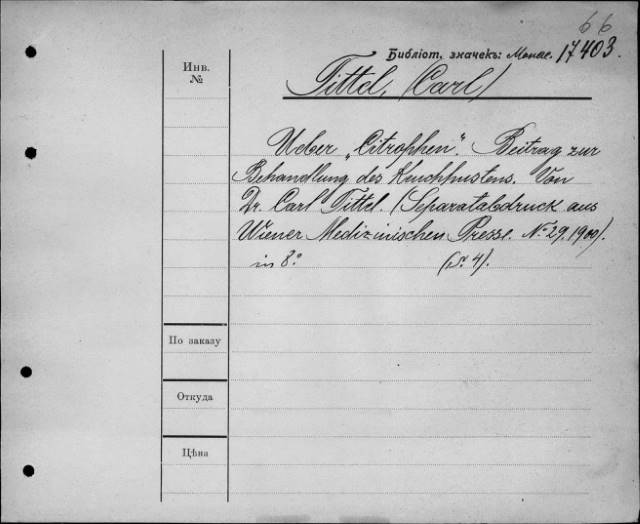 66
Библіот. значекъ: Монас. 17403.
Инв. №
Tittel, (Carl)
Ueber „Citrophen“. Beitrag zur
Behandlung des Keuchhustens. Von
Dr. Carl Tittel. (Separatabdruck aus
Wiener Medizinischen Presse. № 29, 1900).
in 8° (S. 4).
По заказу
Откуда
Цѣна